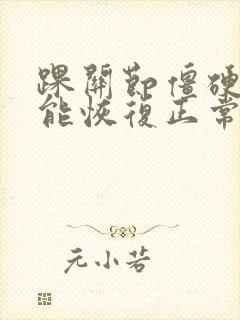 踝關節僵硬
能恢復正常
元小若